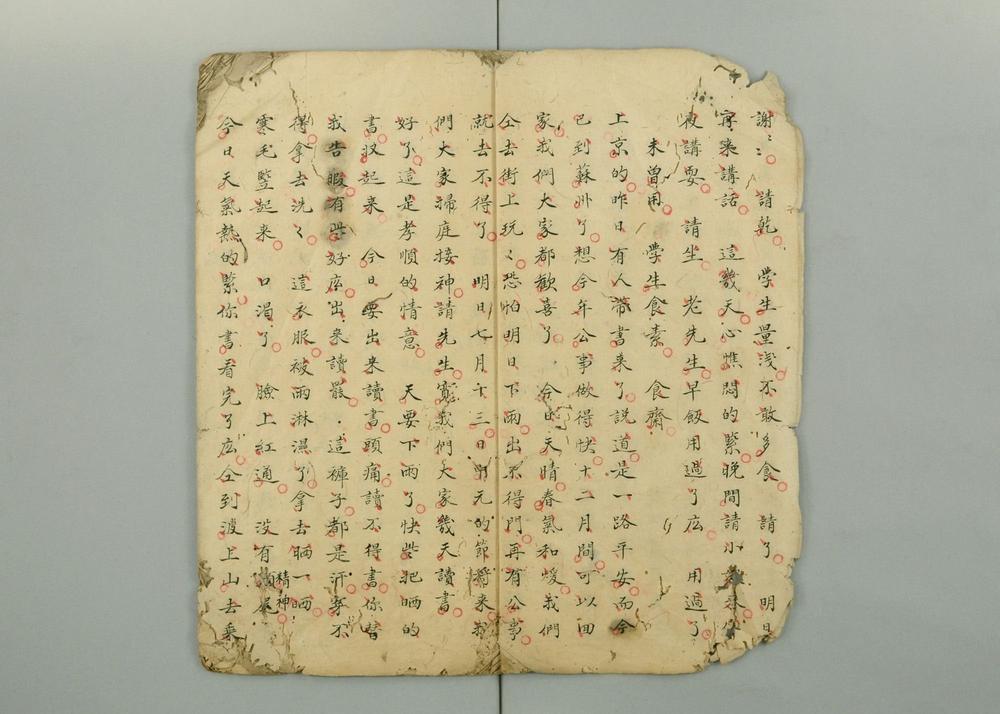 謝〻 請乾 學生量浅不敢多食 請了 明日
再來講話 這幾天心憔悶的緊晚間請小
裡講耍 請坐 老先生早飯用過了庅 用過了
未曾用 學生食素 食齋
上京的昨日有人帶書来了説道是一路平安而今
已到蘇州了想今年公事做得快十二月間可以回
家我們大家都歡喜了 今日天晴春氣和煖我們
仝去街上玩〻恐怕明日下雨出不得門再有公事
就去不得了 明日七月十三日中元的節都来我
們大家掃庭接神請先生寬我們大家幾天讀書
好了這是孝順的情意 天要下雨了快些把晒的
書収起来 今日要出来讀書頭痛讀不得書你替
我告暇有些好庅出来讀嚴 這褲子都是汗拏不
得拿去洗〻 這衣服被雨淋濕了拿去晒一晒
寒毛竪起来 口渴了 臉上紅通 没有 精神
今日天氣熱的緊你書看完了庅仝到渡上山去乘